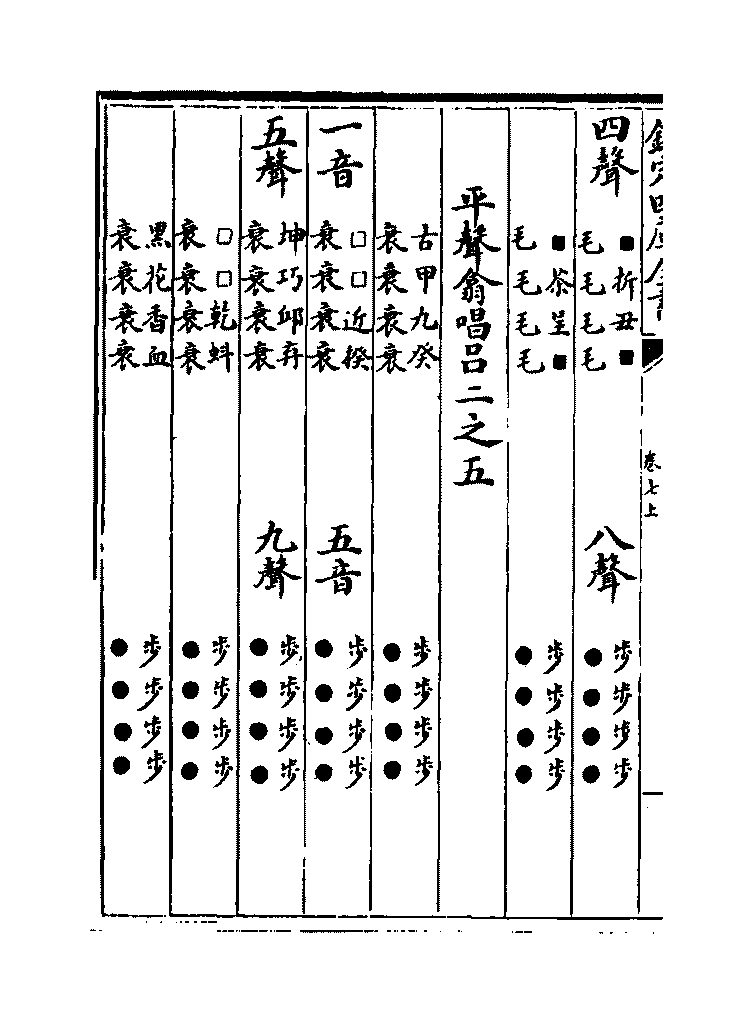 欽定四庫全書 卷七上
四聲 ■折丑■ 八聲 步步步步
毛毛毛毛 ●●●●
■茶呈■ 步步步步
毛毛毛毛 ●●●●
平聲翕唱呂二之五
古甲九癸 步步步步
衰衰衰衰 ●●●●
一音 □□近揆 五音 步步步步
衰衰衰衰 ●●●●
五聲 坤巧邱弃 九聲 步步步步
衰衰衰衰 ●●●●
□□乾蚪 步步步步
衰衰衰衰 ●●●●
黑花香血 步步步步
衰衰衰衰 ●●●●